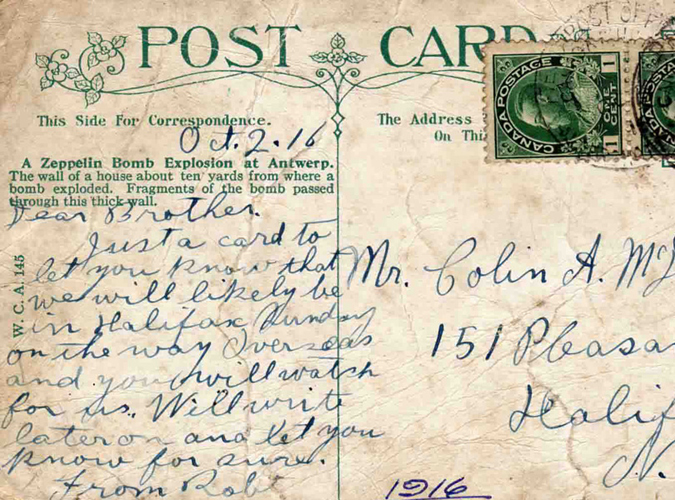 POST CARD
This Side For Correspondence.
The Address
On Thi
Oct. 2. 16
A Zeppelin Bomb Explosion at Antwerp.
The wall of a house about ten yards from where a
bomb exploded. Fragments of the bomb passed
through this thick wall.
Dear Brother.
Just a card to
let you know that
we will likely be
in Halifax Sunday
on the way Overseas
and you will watch
for us. Will write
later on and let you
know for sure.
From Rob
W. C. A. 145
Mr. Colin A. Mc
151 Pleasa
Halif
N.
1916
CANADA POSTAGE
1 ONE CENT 1
CANADA POSTAGE
POST OF